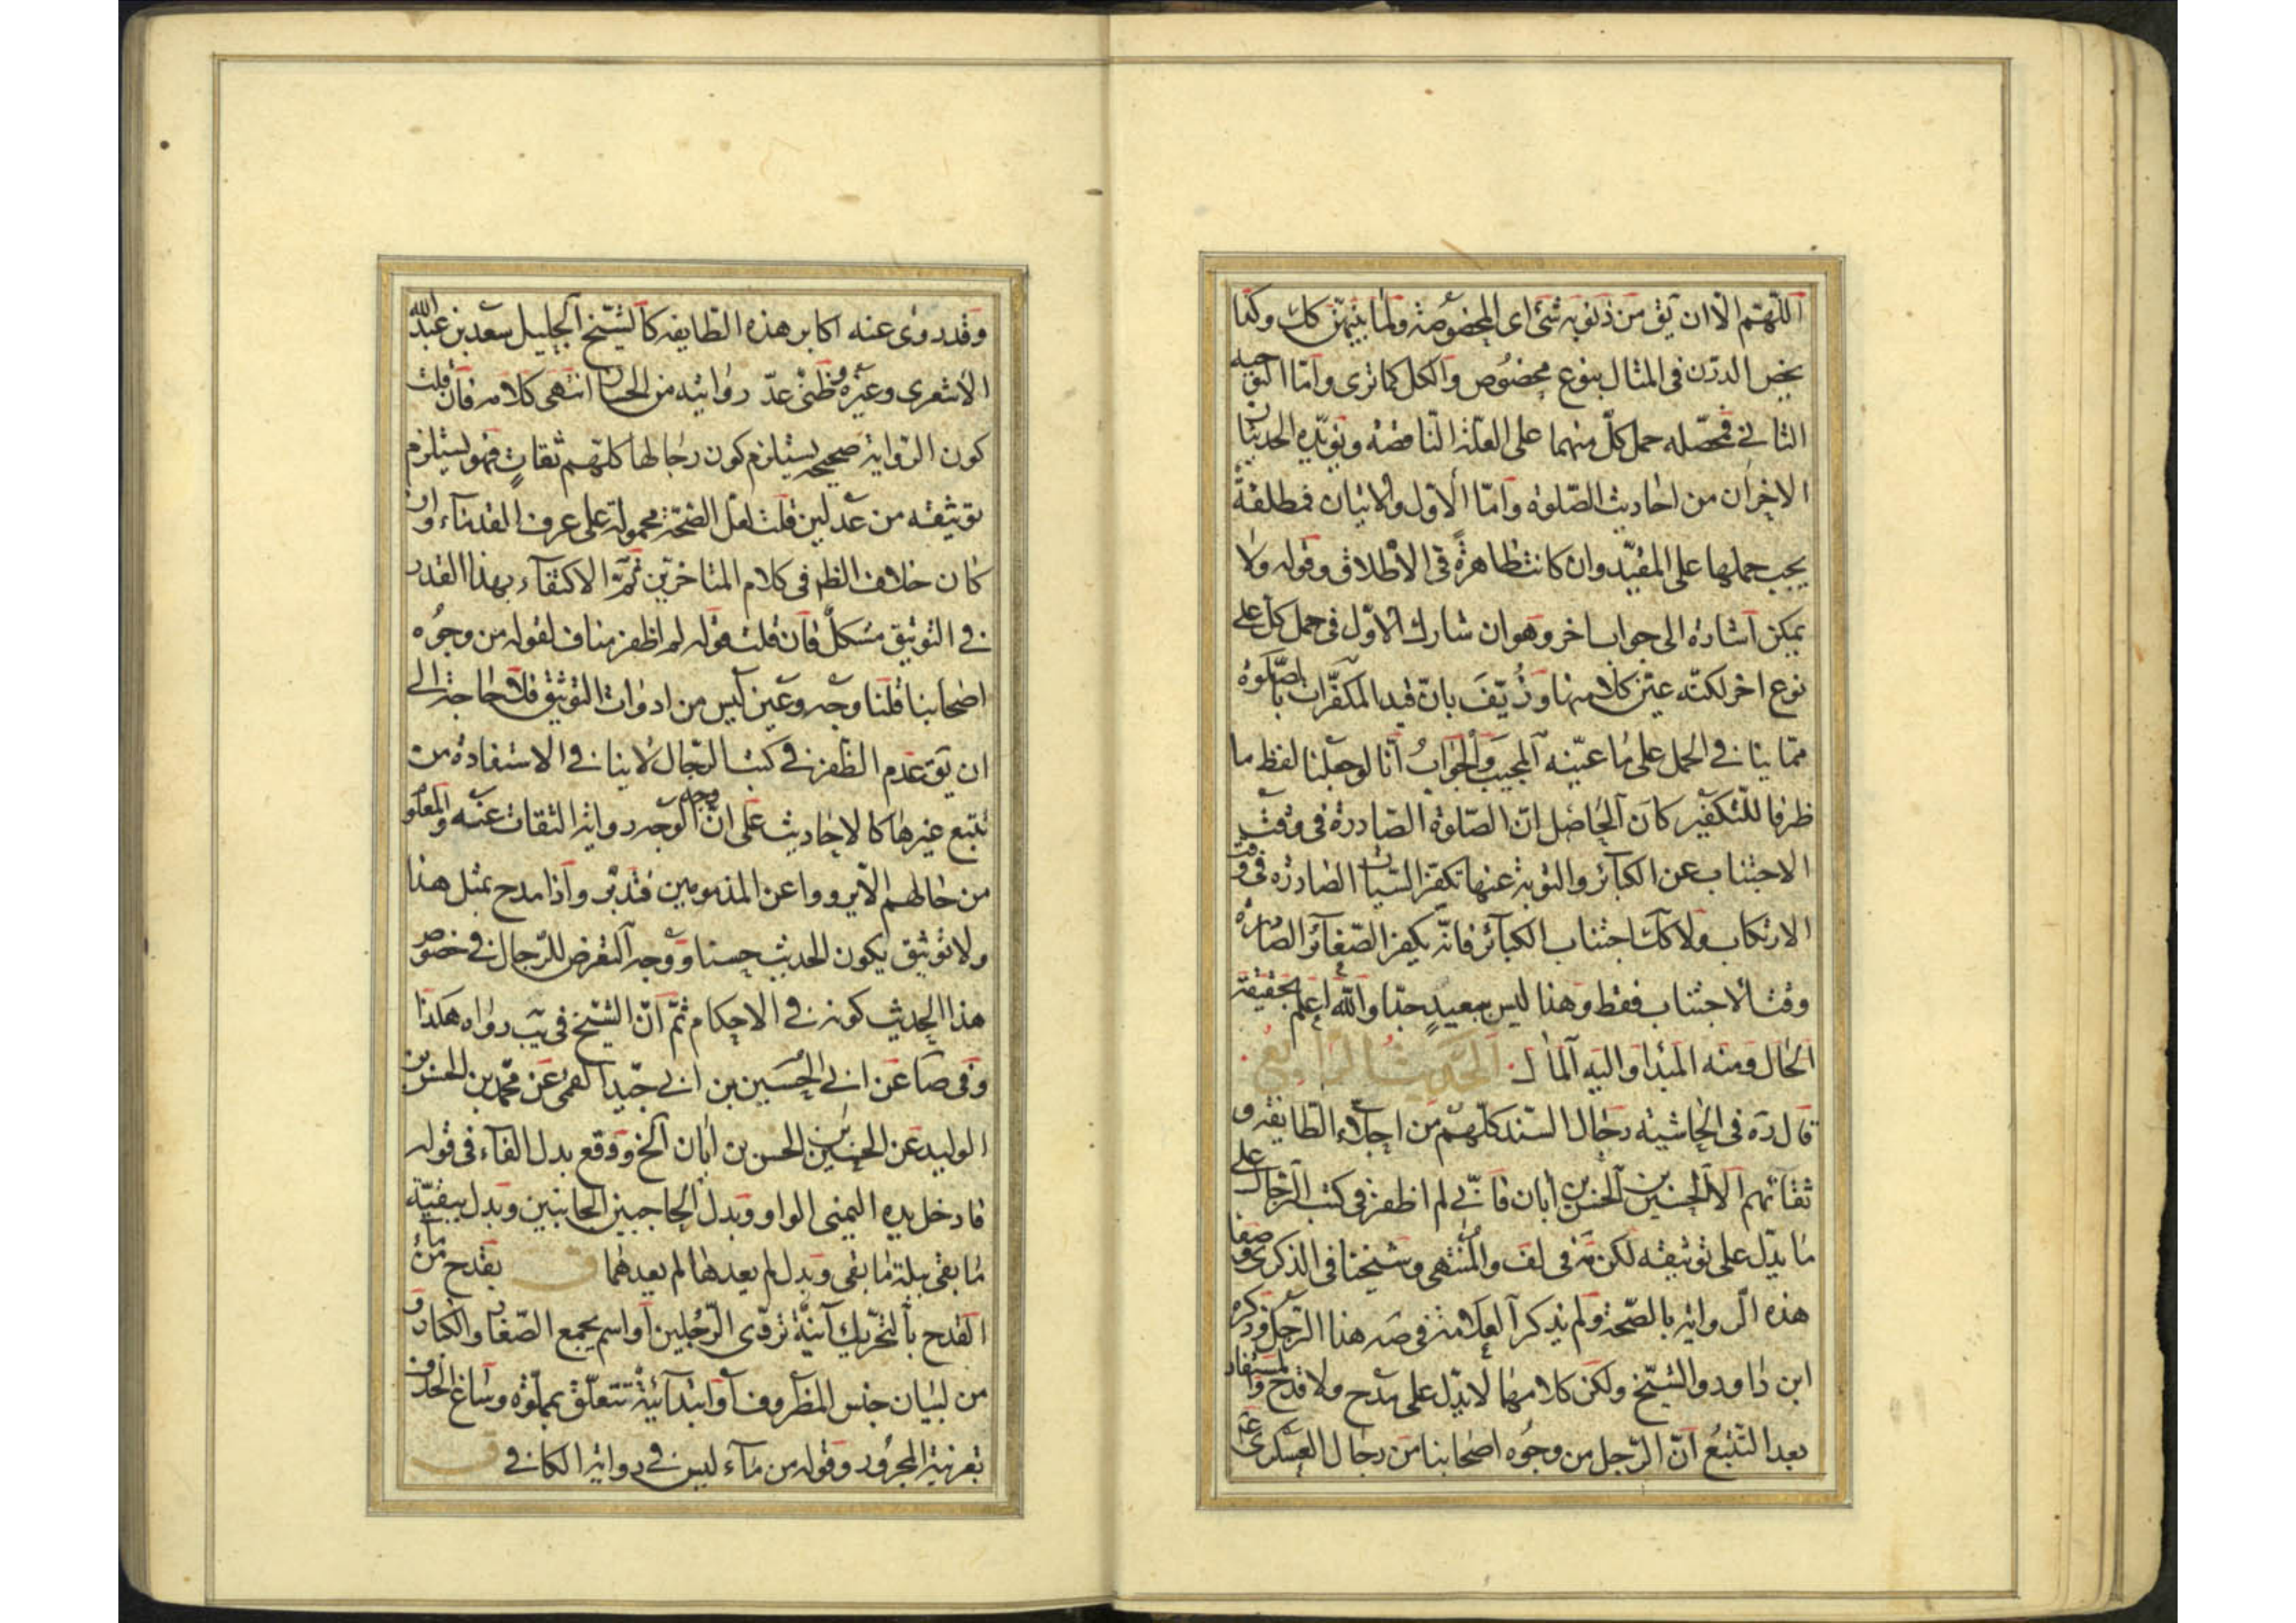 اللّهمّ الّا ان يق من ذنوبه شئ اى المخصوصة ولما بينهنّ كك وكما
يخص الدرن فى المثال بنوع مخصوص والكل كما ترى وامّا التوجيه
الثانى فمحصّله حمل كلّ منهما على العلّة الناقصة ويؤيّده الحديثان
الاخران من احاديث الصّلوة وامّا الاول والاتيان فمطلقة
يجب حملها على المقيّد وان كانت ظاهرة فى الاطلاق وقوله ولا
يمكن اشارة الى جواب اخر وهو ان شارك الاوّل فى حمل كل على
نوع اخر لكنّه عيّن كلا منها وزُيّفَ بانّ قيد المكفّرات بالصّلوة
ممّا ينافى الحمل على ما عيّنه المجيب والجواب انّا لو جعلنا لفظ ما
ظرفا للتكفير كان الحاصل انّ الصّلوة الصّادرة فى وقت
الاجتناب عن الكبائر والتوبة عنها تكفر السّيات الصادرة فى وقت
الارتكاب ولا كك اجتناب الكبآئر فانّه يكفر الصّغآئر الصادرة
وقت الاجتناب فقط وهذا ليس ببعيدٍ جدّا والله اعلم بحقيقة
الحال ومنه المبدا واليه المآل الحديث الرابع
قال ره فى الحاشية رجال السّند كلّهم من اجلّاء الطايفة و
ثقاتهم الا الحسين بن الحسن بن ابان فانّى لم اظفر فى كتب الرّجال على
ما يدّل على توثيقه لكن مة فى لف والمنتهى وشيخنا فى الذكرى وصفا
هذه الرواية بالصّحة ولم يذكر العلامة فى صه هذا الرّجل وذكره
ابن داود والشيخ ولكن كلامهما لا يدّل على مدح ولا قدح والمستفاد
بعد التتبع انّ الرّجل من وجوه اصحابنا من رجال العسكرى ع
وقد روى عنه اكابر هذه الطايفه كالشّيخ الجليل سعد بن عبد الله
الاشعرى وغيره وظنّى عدّ روايته من الحسان انتهى كلامه فان قلت
كون الرواية صحيحة يستلزم كون رجالها كلّهم ثقاتٍ فهو يستلزم
توثيقه من عدلين قلت لعل الصّحّة محمولة على عرف القدماء وان
كان خلاف الظ فى كلام المتاخرين ثمّ الاكتفآء بهذا القدر
فى التوثيق مشكل فان قلت قوله لم اظفر مناف لقوله من وجوه
اصحابنا قلنا وجه وعين ليس من ادوات التوثيق فلا حاجة الى
ان يق عدم الظفر فى كتب الرّجال لا ينافى الاستفادة من
تتبع غيرها كالاحاديث على انّ وجه الوجه رواية الثقات عنه والمعلوم
من حالهم الّا يرووا عن المذمومين فتدبّر واذا مدح بمثل هذا
ولا توثيق يكون الحديث حسنا ووجه التعرض للرّجال فى خصوص
هذا الحديث كونه فى الاحكام ثمّ انّ الشيخ فى يب رواه هكذا
وفى صا عن ابى الحسين بن ابى جيد القمى عن محمّد بن الحسن بن
الوليد عن الحسين بن الحسن بن ابان الخ ووقع بدل الفآء فى قوله
فادخل يده اليمنى الواو وبدل الحاجبين الجانبين وبدل ببقيّة
ما بقى ببلة ما بقى وبدل لم يعدها لم يعدهما ق بقدح من مآء
القدح بالتحريك آنية تروى الرّجلين او اسم يجمع الصّغار والكبار و
من لبيان جنس المظروف او ابتدائية تتعلّق بمملوة وساغ الحذف
بقرنية المجرور وقوله من مآء ليس فى رواية الكافى ق